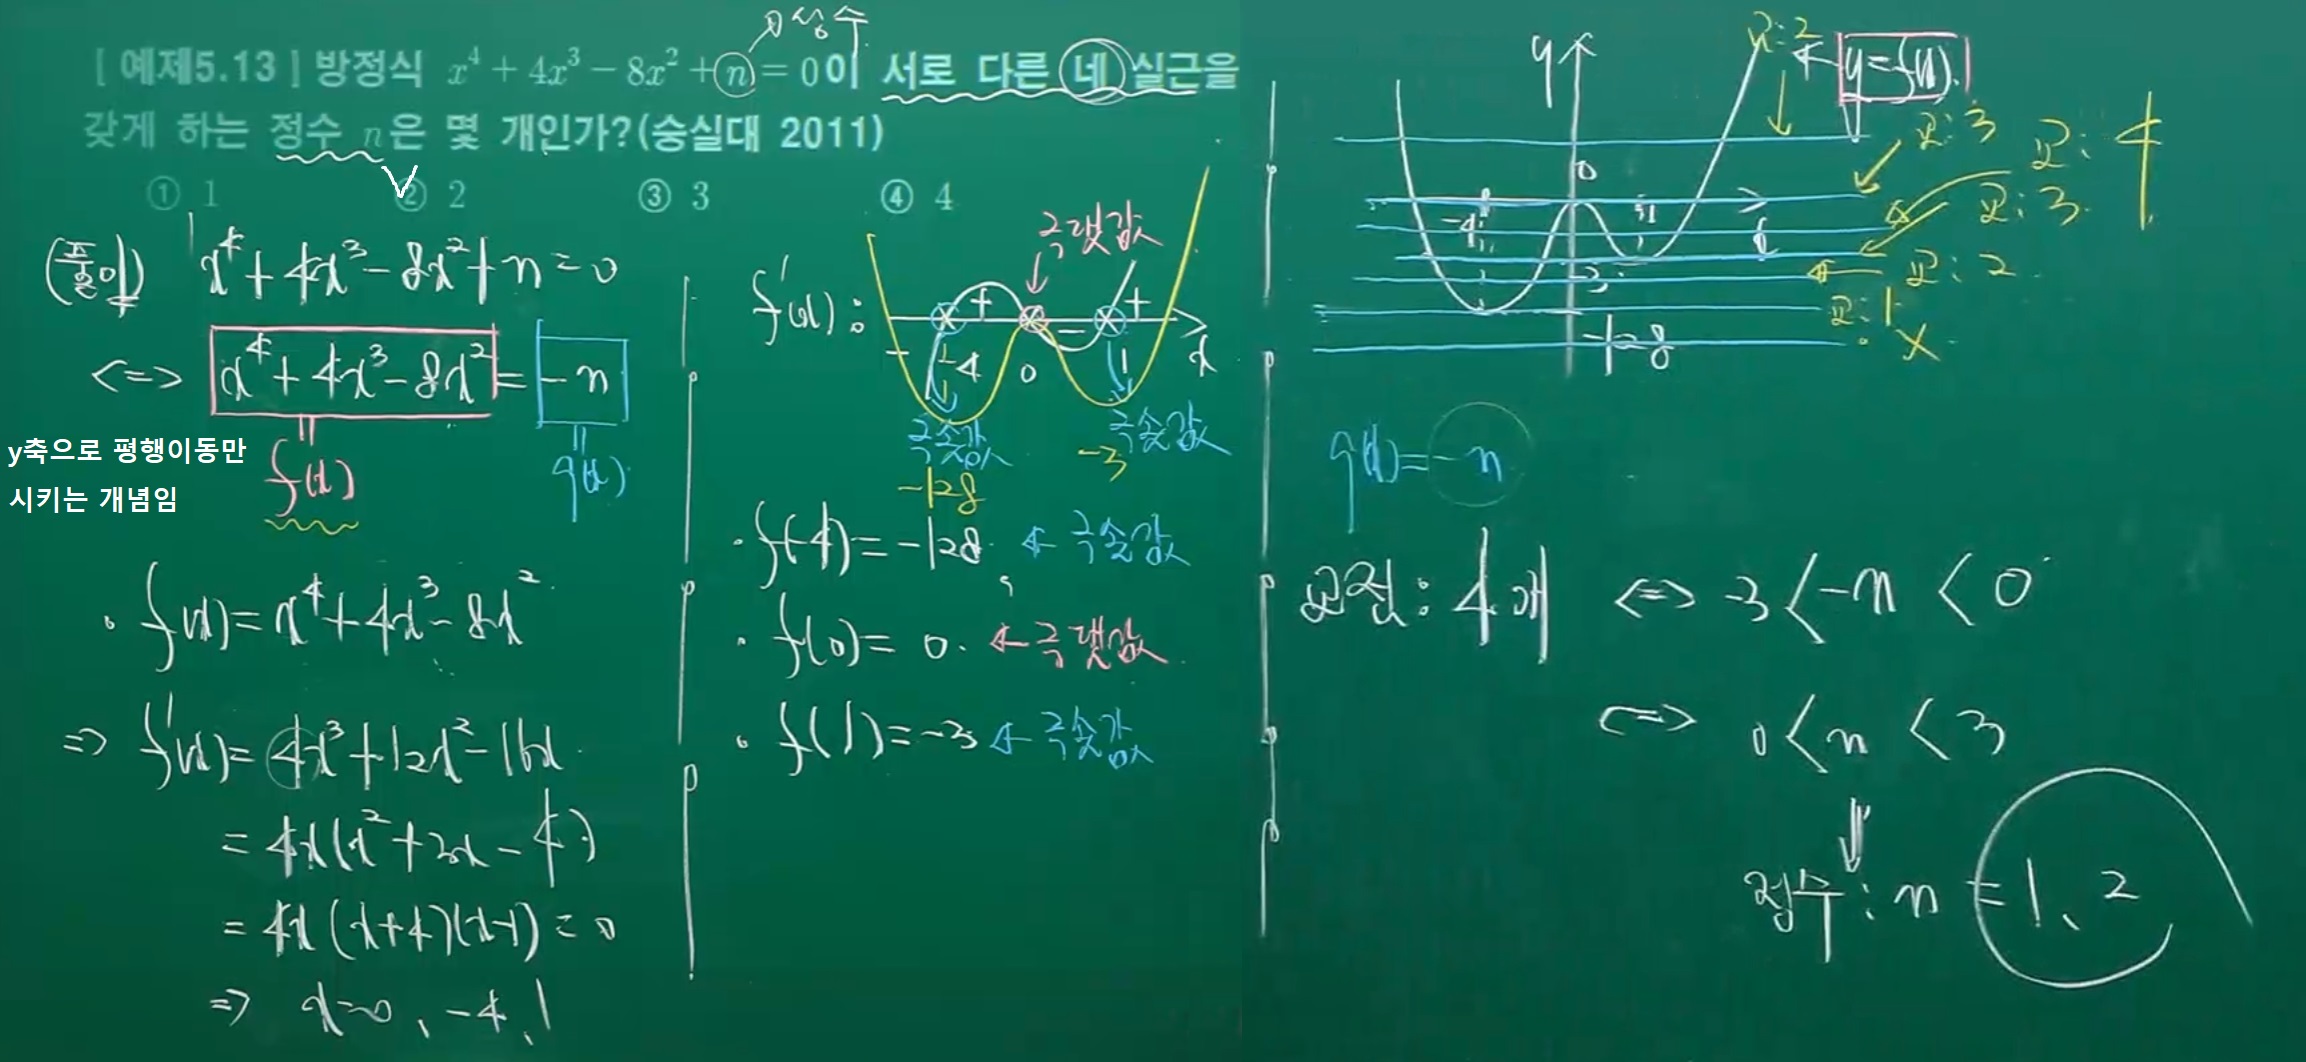 [ 예제5.13 ] 방정식 x⁴ + 4x³ − 8x² + n = 0이 서로 다른 네 실근을
갖게 하는 정수 n은 몇 개인가?(숭실대 2011)
① 1 ② 2 ③ 3 ④ 4
상수
(풀이) x⁴ + 4x³ − 8x² + n = 0
<=> x⁴ + 4x³ − 8x² = −n
y축으로 평행이동만
시키는 개념임
f(x) g(x)
· f(x) = x⁴ + 4x³ − 8x²
=> f'(x) = 4x³ + 12x² − 16x
= 4x(x² + 3x − 4)
= 4x(x+4)(x−1) = 0
=> x = 0, −4, 1
극댓값
f'(x) :
− + − +
−4 0 1 x
극솟값 극솟값
−128 −3
· f(−4) = −128 ← 극솟값
· f(0) = 0. ← 극댓값
· f(1) = −3 ← 극솟값
y 교:2 y = f(x)
교:3
교:4
교:3
교:2
교:1
X
0
−4 1 x
−3
−128
g(x) = −n
교점 : 4개 <=> −3 < −n < 0
<=> 0 < n < 3
정수 : n = 1, 2